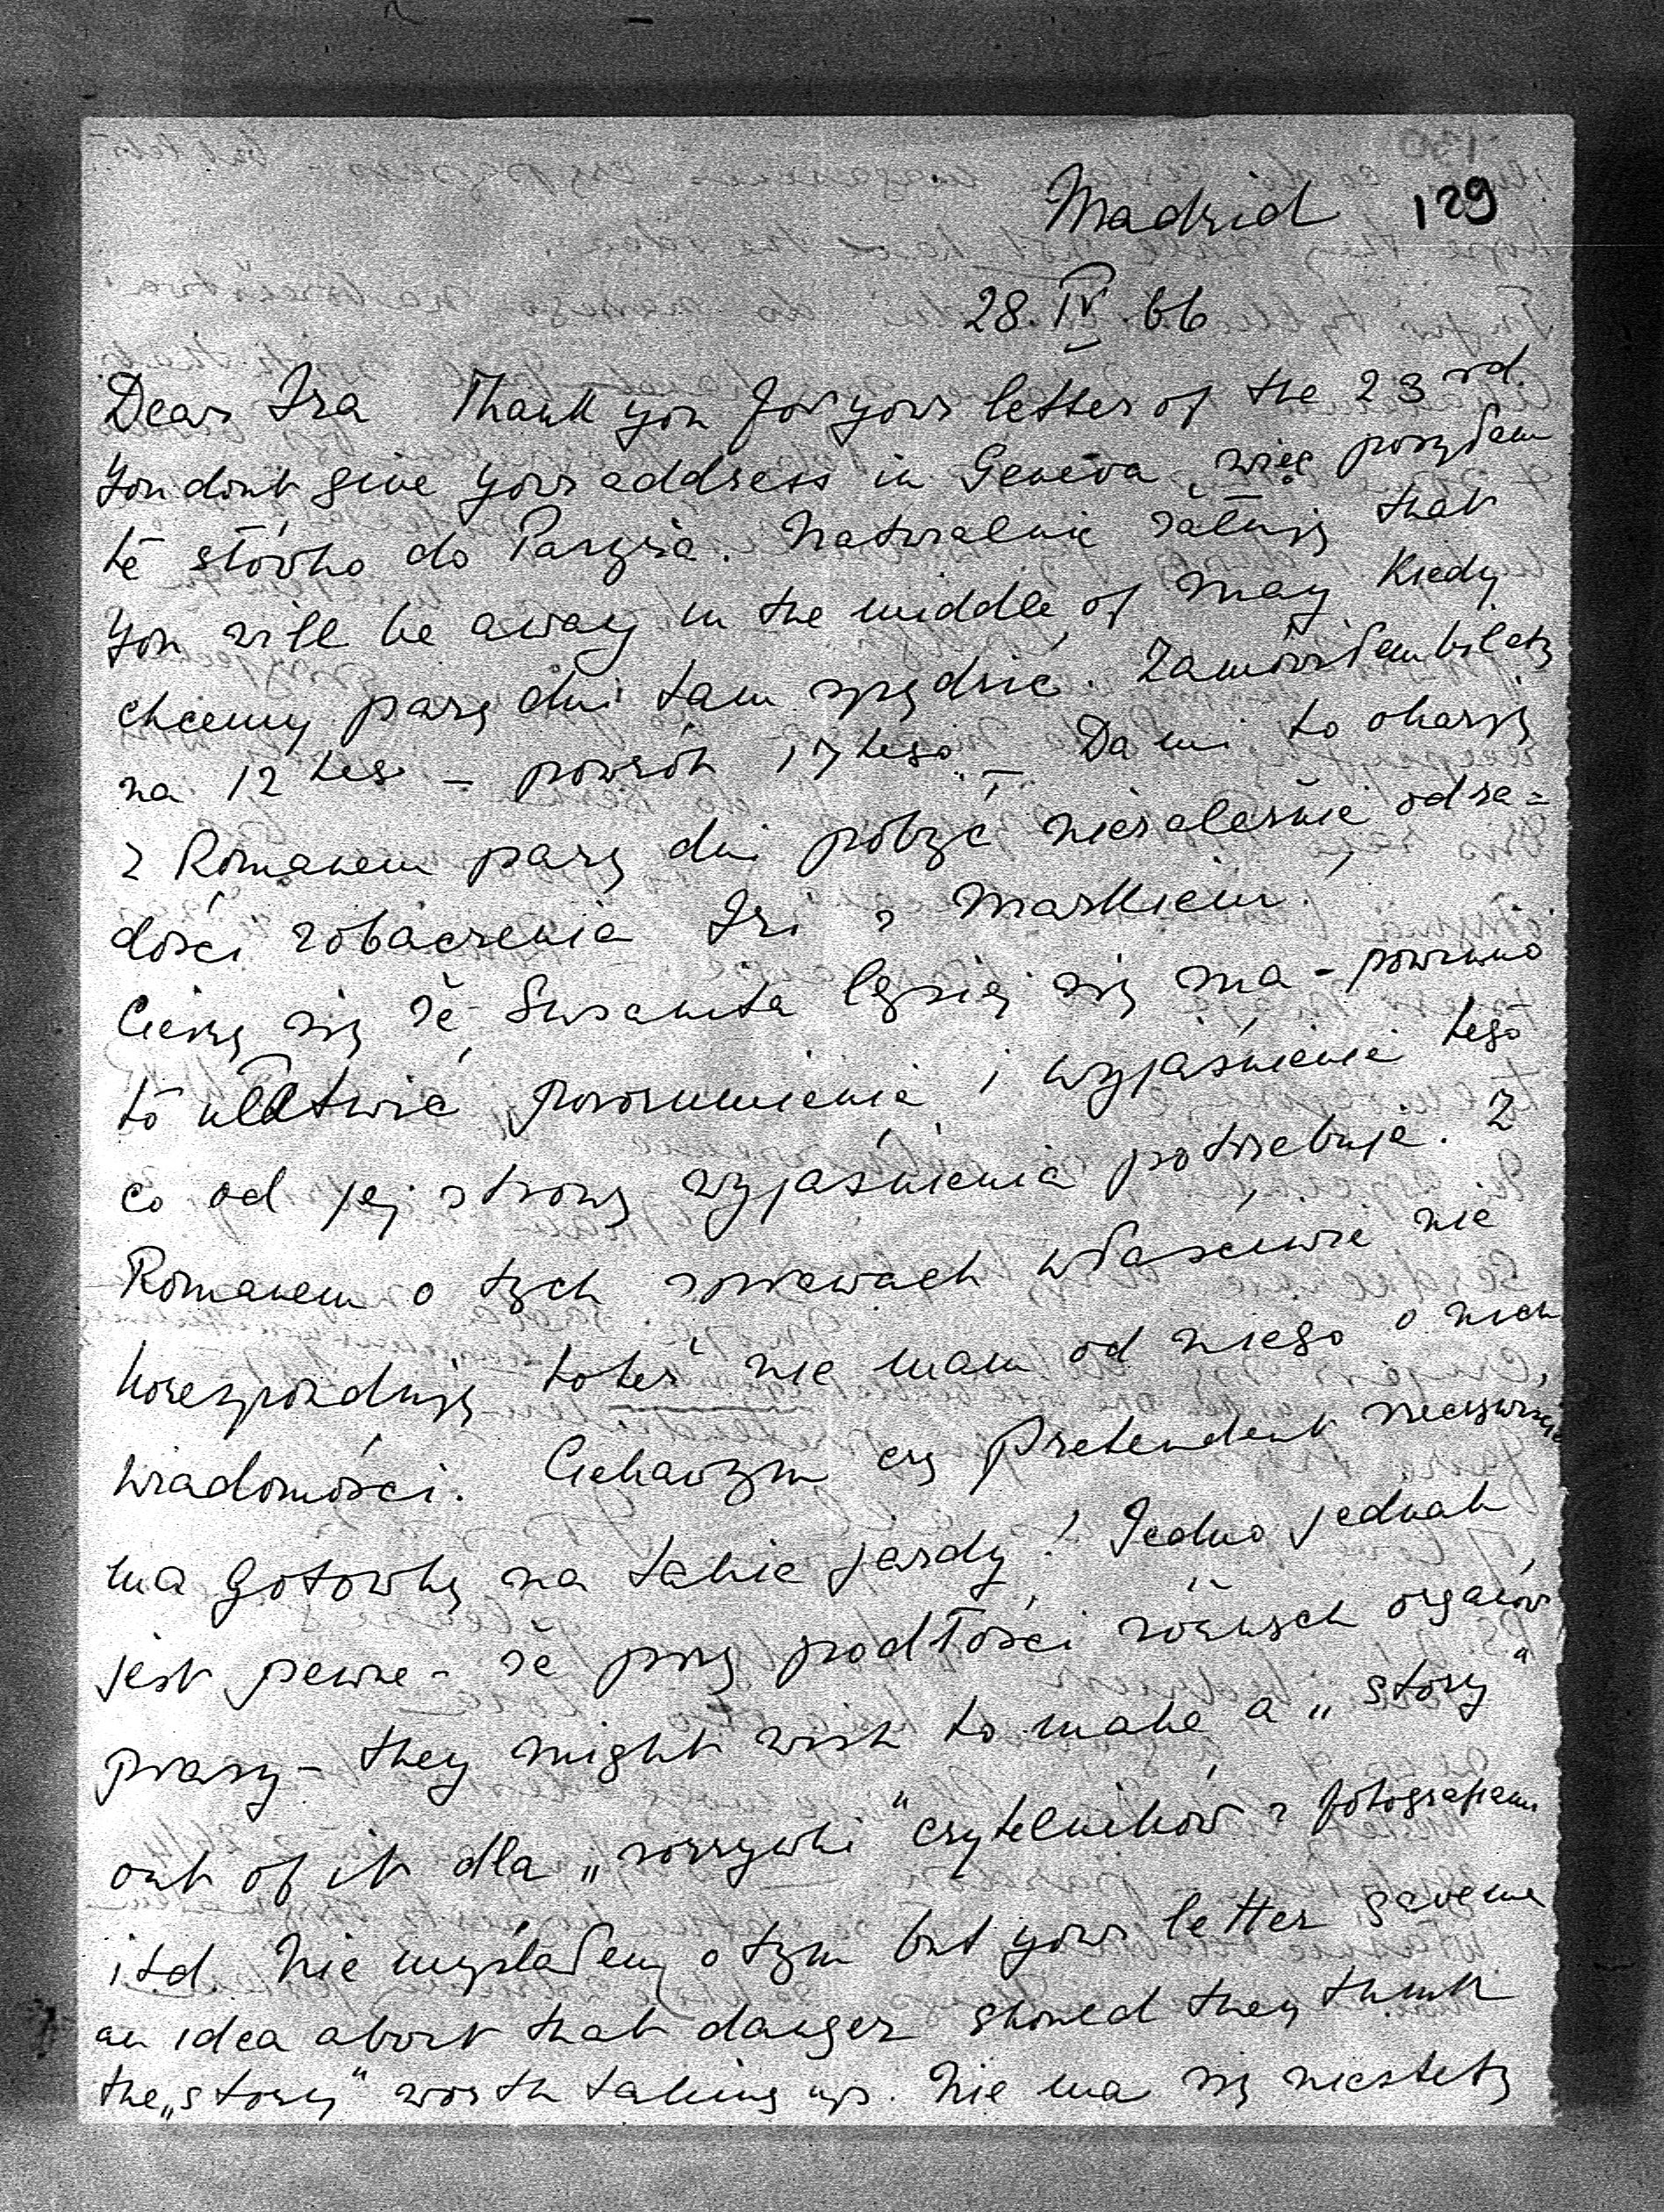 Madrid 129
28. IV 66
Dear Iza Thank you for your letter of the 23rd.
You dont give your address in Geneva, więc posyłam
te słówko do Paryża. Naturalnie żałuję that
you will be away in the middle of May kiedy
chcemy parę dni tam spędzić. Zamówiłem bilety
na 12 tego – powrót 17 tego. – Da mi to okazję
z Romanem parę dni pobyć niezależnie od ra=
dości zobaczenia Izi z Markiem.
Cieszę się że Suzanita lepiej się ma – powinno
to ułatwić porozumienie i wyjaśnienie tego
co od jej strony wyjaśnienia potrzebuje. Z
Romanem o tych sprawach właściwie nie
koresponduję toteż nie mam od niego o nich
wiadomości. Ciekawym czy Pretendent rzeczywiście
ma gotówkę na takie jazdy! Jedno jednak
jest pewne – że przy podłości różnych organów
prasy – they might wish to make a „story"
out of it dla „rozrywki" czytelników z fotografiami
itd. Nie myślałem o tym but your letter gave me
an idea about that danger should they think
the „story" worth taking up. Nie ma się niestety